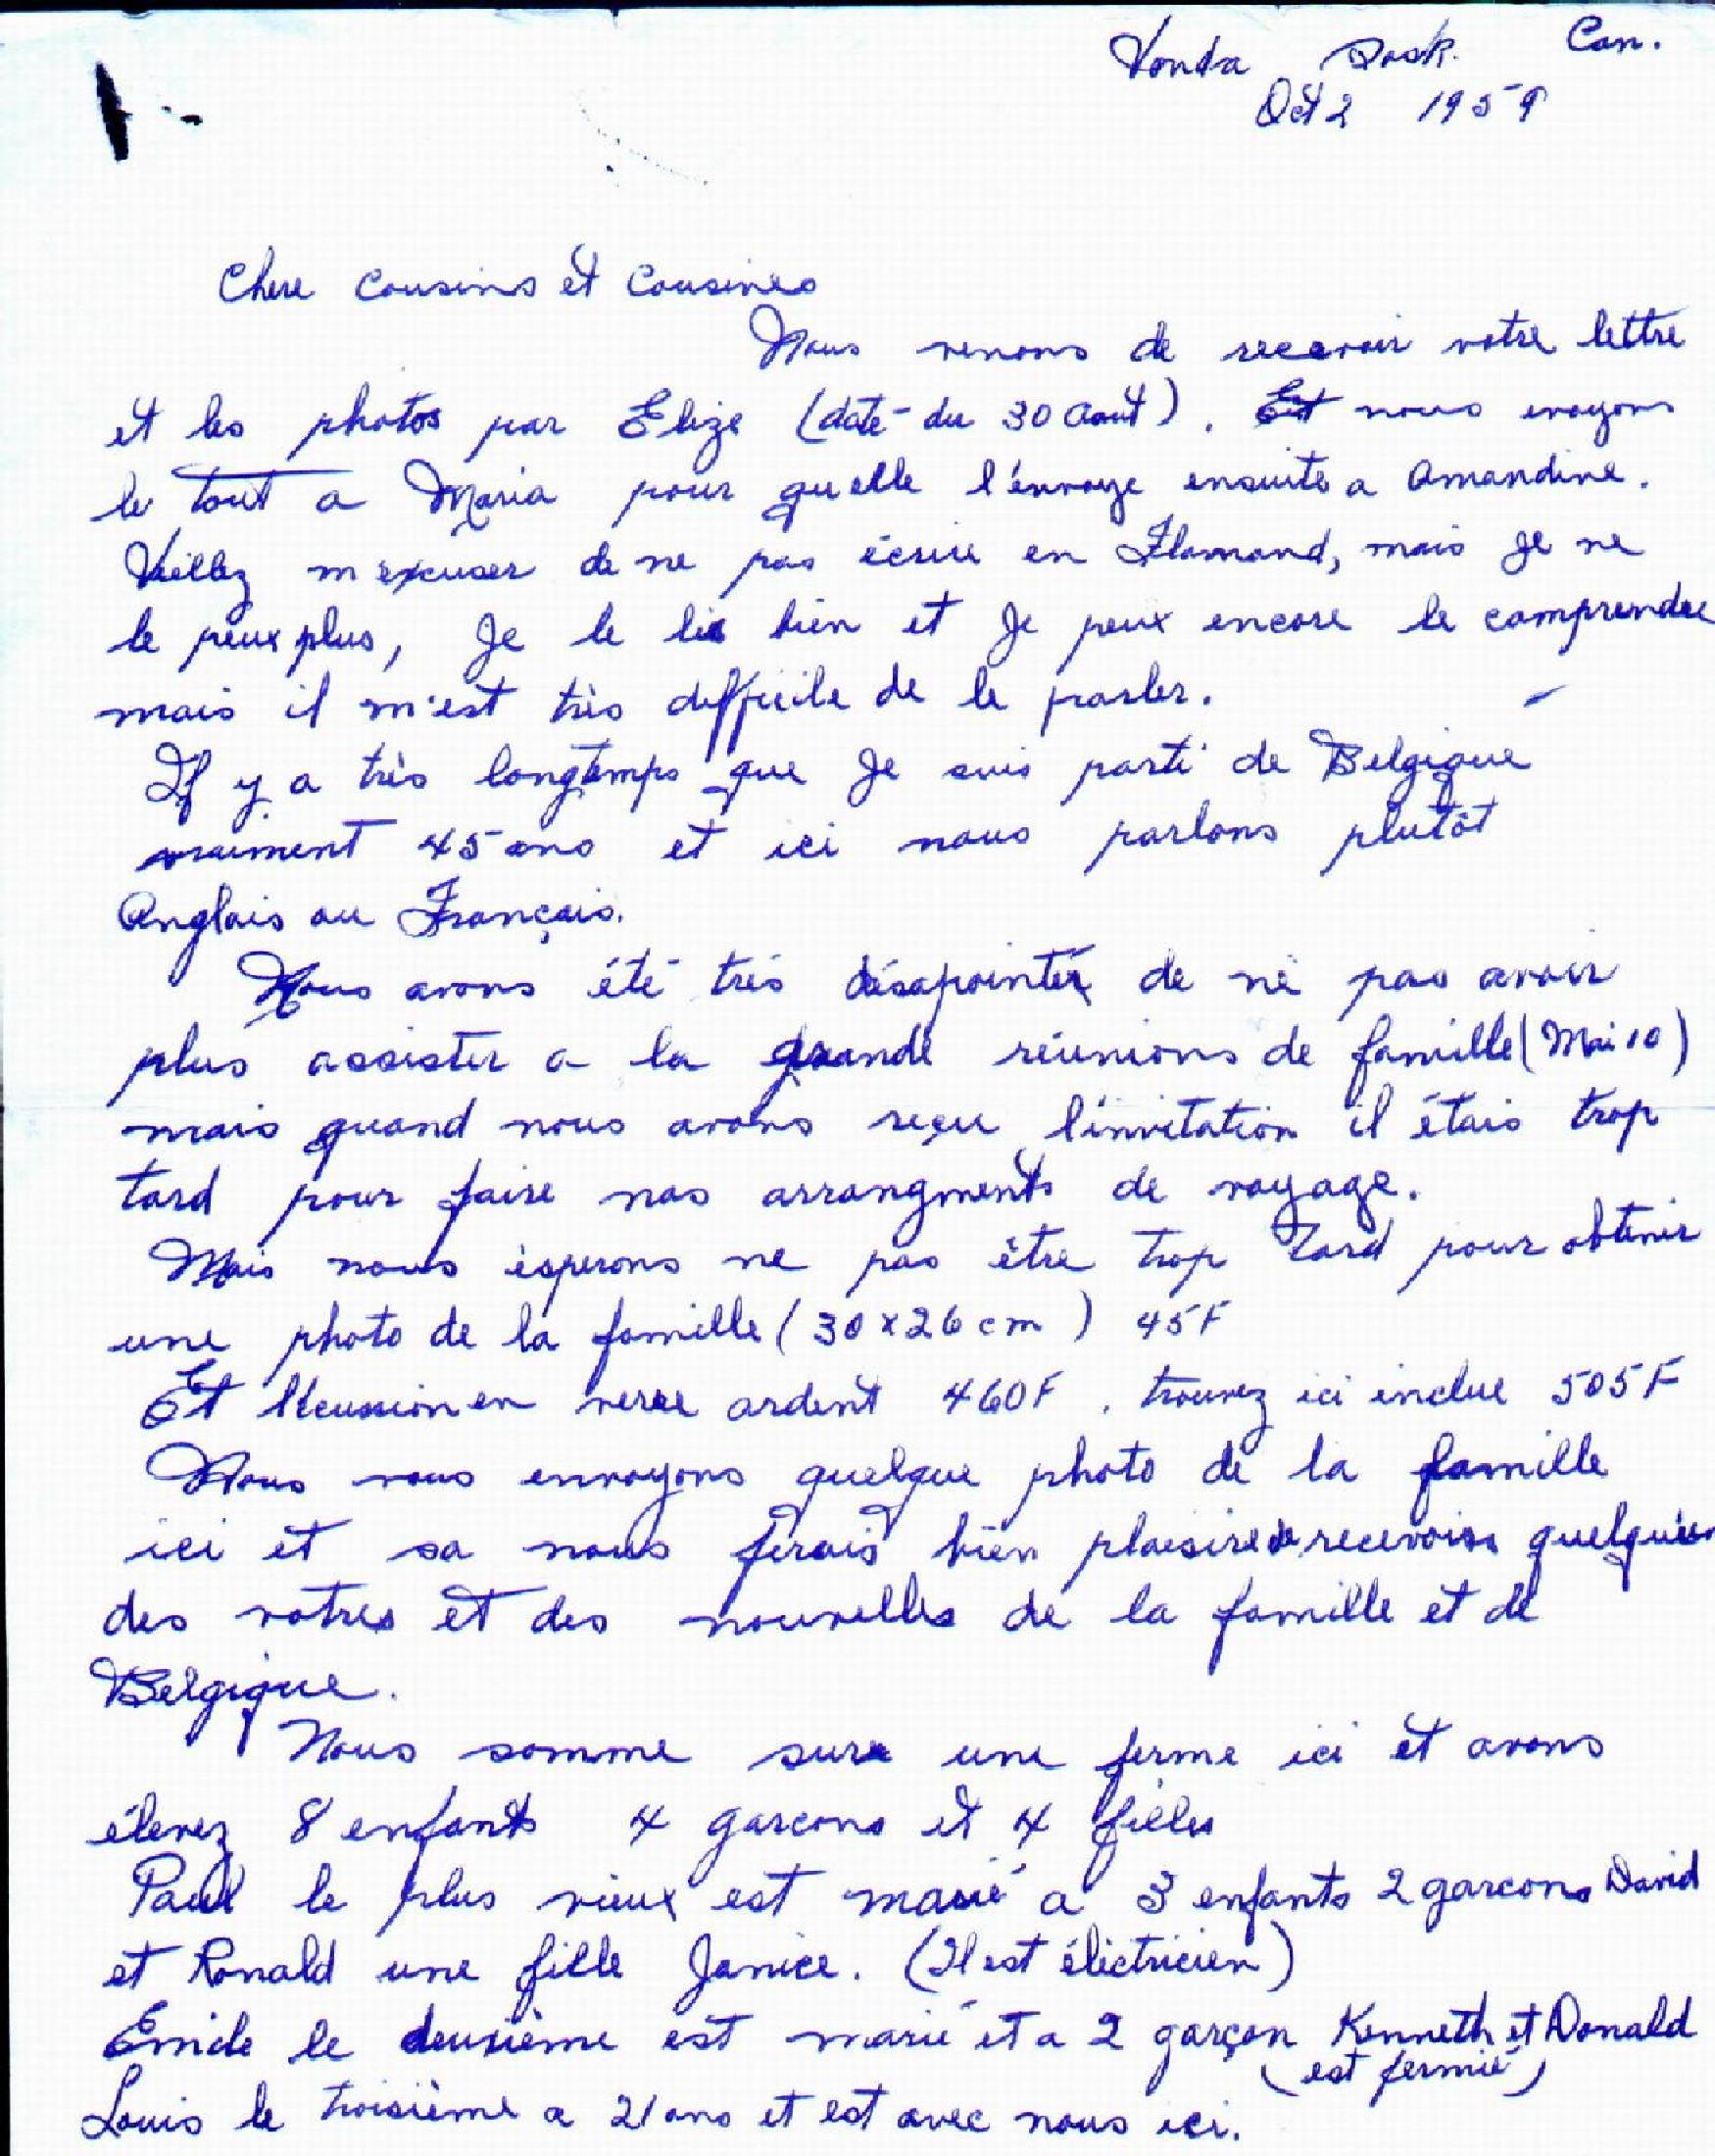 Vonda Sask. Can.
Oct 2 1959
Chere Cousins et Cousines
Nous venons de recevoir votre lettre
et les photos par Elize (daté du 30 Aout). Et nous envoyons
le tout a Maria pour quelle l'énvoye ensuite a Amandine.
Veillez m'excuser de ne pas écrire en Flamand, mais Je ne
le peux plus, Je le lis bien et Je peux encore le comprendre
mais il m'est très difficile de le parler.
Il y a très longtemps que Je suis parti de Belgique
vraiment 45 ans et ici nous parlons plutôt
Anglais ou Français.
Nous avons été très désapointéz de ne pas avoir
plus assister a la grande réunions de famille (Mai 10)
mais quand nous avons reçu l'invitation il étais trop
tard pour faire nos arrangments de voyage.
Mais nous ésperons ne pas être trop tard pour obtenir
une photo de la famille (30 x 26 cm) 45F
Et l'écussion en verre ardent 460F. trouvez ici inclue 505F
Nous vous envoyons quelque photo de la famille
ici et sa nous ferais bien plaisire de recevoir
des votres et des nouvelles de la famille et de
Belgique.
Nous somme sure une ferme ici et avons
élevez 8 enfants 4 garcons et 4 filles
Paul le plus vieux est marié a 3 enfants 2 garcons David
et Ronald une fille Janice. (Il est électricien)
Emile le deusième est marié et a 2 garçon Kenneth et Donald
(est fermié)
Louis le troisième a 21 ans et est avec nous ici.